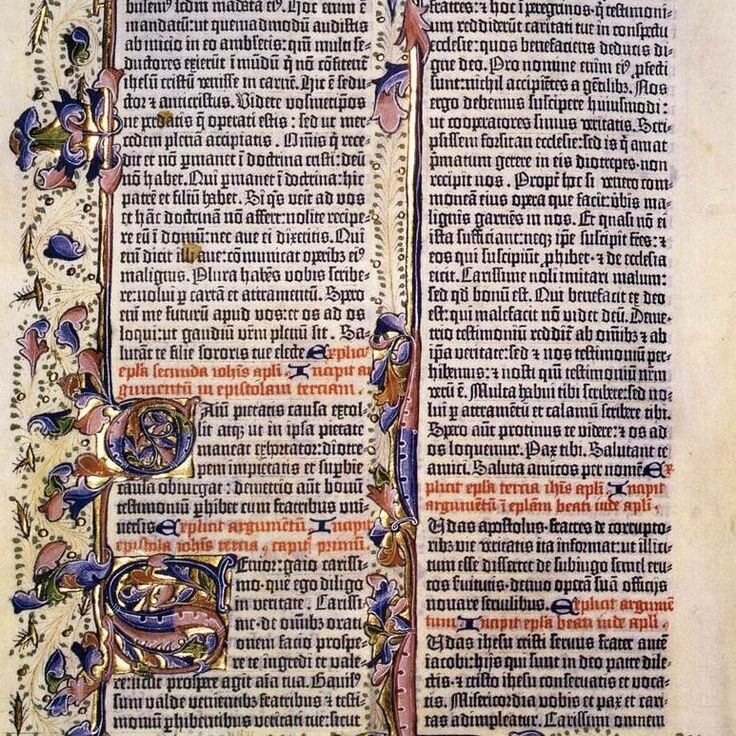 bulem⁹ scdm mādata ei⁹. Hoc enim ē
mandatū: ut quemadmodū audistis
ab inicio in eo ambletis: qm̄ multi se-
ductores exierūt ī mūdū q̄ nō cōfitent̄
ihesum cristū venisse in carnē. Hic ē sedu-
ctor ⁊ anticristus. Videte vosmetip̄os
ne perdatis q̄ operati estis: sed ut mer-
cedem plenā accipiatis. Omīs q̄ rece-
dit et nō ꝑmanet ī doctrina cristi: deū
nō habet. Qui ꝑmanet ī doctrina: hic
patrē et filiū habet. Si q̄s venit ad vos
et hāc doctrinā nō affert: nolite recipe-
re eū ī domū: nec ave ei dixeritis. Qui
enī dicit illi ave: cōmunicat operibꝫ ei⁹
malignis. Plura habēs vobis scribe-
re: nolui ꝑ cartā et atramentū. Spero
enī me futurū apud vos: et os ad os
loqui: ut gaudiū vr̄m plenū sit. Sa-
lutāt te filie sororis tue electe Explicit
epl̄a secunda ioh̄is apl̄i. Incipit ar-
gumentū in epistolam terciam.
Gaiū pietatis causa extol-
lit atqꝫ ut in ipsa pietate
maneat exhortatur: diotre-
pem impietatis et supbie
causa obiurgat: demetrio aūt bonū
testimoniū ꝑhibet cum fratribus uni-
versis Explicit argumētū. Incipit
epistola ioh̄is tercia. capitl̄ primū.
Senior: gaio carissi-
mo. que ego diligo
in veritate. Carissi-
me. de omībꝫ orati-
onem facio prospe-
re te ingredi et vale-
re: sicut prospere agit aīa tua. Gavis⁹
sum valde venientibꝫ fratribus ⁊ testi-
moniū ꝑhibentibus veritati tue: sicut
fratres: ⁊ hoc ī peregrinos. q̄ testimoni-
um reddiderūt caritati tue in conspectu
ecclesie: quos benefaciens deducis di-
gne deo. Pro nomine enim ei⁹ ꝓfecti
sunt: nichil accipiētes a gētilibꝫ. Nos
ergo debemus suscipere huiusmodi:
ut cooperatores simus veritatis. Scri-
psissem forsitan ecclesie: sed is q̄ amat
ṗmatum gerere in eis diotrepes. non
recipit nos. Propt̄ hoc si venero com-
moneā eius opera que facit: v̄bis ma-
lignis garriēs in nos. Et quasi nō ei
ista sufficiant: neqꝫ ip̄e suscipit fr̄es: ⁊
eos qui suscipiūt ꝓhibet. ⁊ de ecclesia
eicit. Carissime noli imitari malum:
sed qd̄ bonū est. Qui benefacit ex deo
est: qui malefacit nō videt deū. Deme-
trio testimoniū reddit̄ ab omībꝫ ⁊ ab
ip̄a veritate: sed ⁊ nos testimoniū per-
hibemus: ⁊ nosti qm̄ testimoniū nr̄m
verū ē. Multa habui tibi scribere: sed no-
lui ꝑ atramētū et calamū scribere tibi.
Spero aūt protinus te videre: ⁊ os ad
os loquemur. Pax tibi. Salutant te
amici. Saluta amicos per nomē Ex-
plicit epl̄a tercia ioh̄is apl̄i Incipit
argumētū ī epl̄am beati iude apl̄i.
Iudas apostolus. fratres de corrupto-
ribꝫ vie veritatis ita informat: ut illici-
tum esse dissereret de subiugo semel eru-
tos servitutis. denuo operā suā officijs
novare servilibus. Explicit argumē-
tum. Incipit epl̄a beati iude apl̄i.
Iudas ihesu cristi servus frater autē
iacobi: hijs qui sunt in deo patre dile-
ctis. ⁊ cristo ihesu conservatis et voca-
tis. Misericordia vobis et pax et cari-
tas adimpleatur. Carissimi omnem